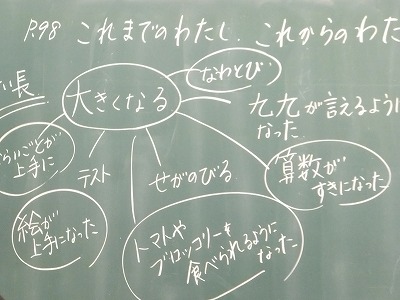 P.98 これまでのわたし、これからのわた
なわとび
い長
大きくなる
九九が言えるように
なった
らいごとが
上手に
テスト
せがのびる
算数が
すきになった
絵が
上手になった
トマトや
ブロッコリーを
食べられるように
なった